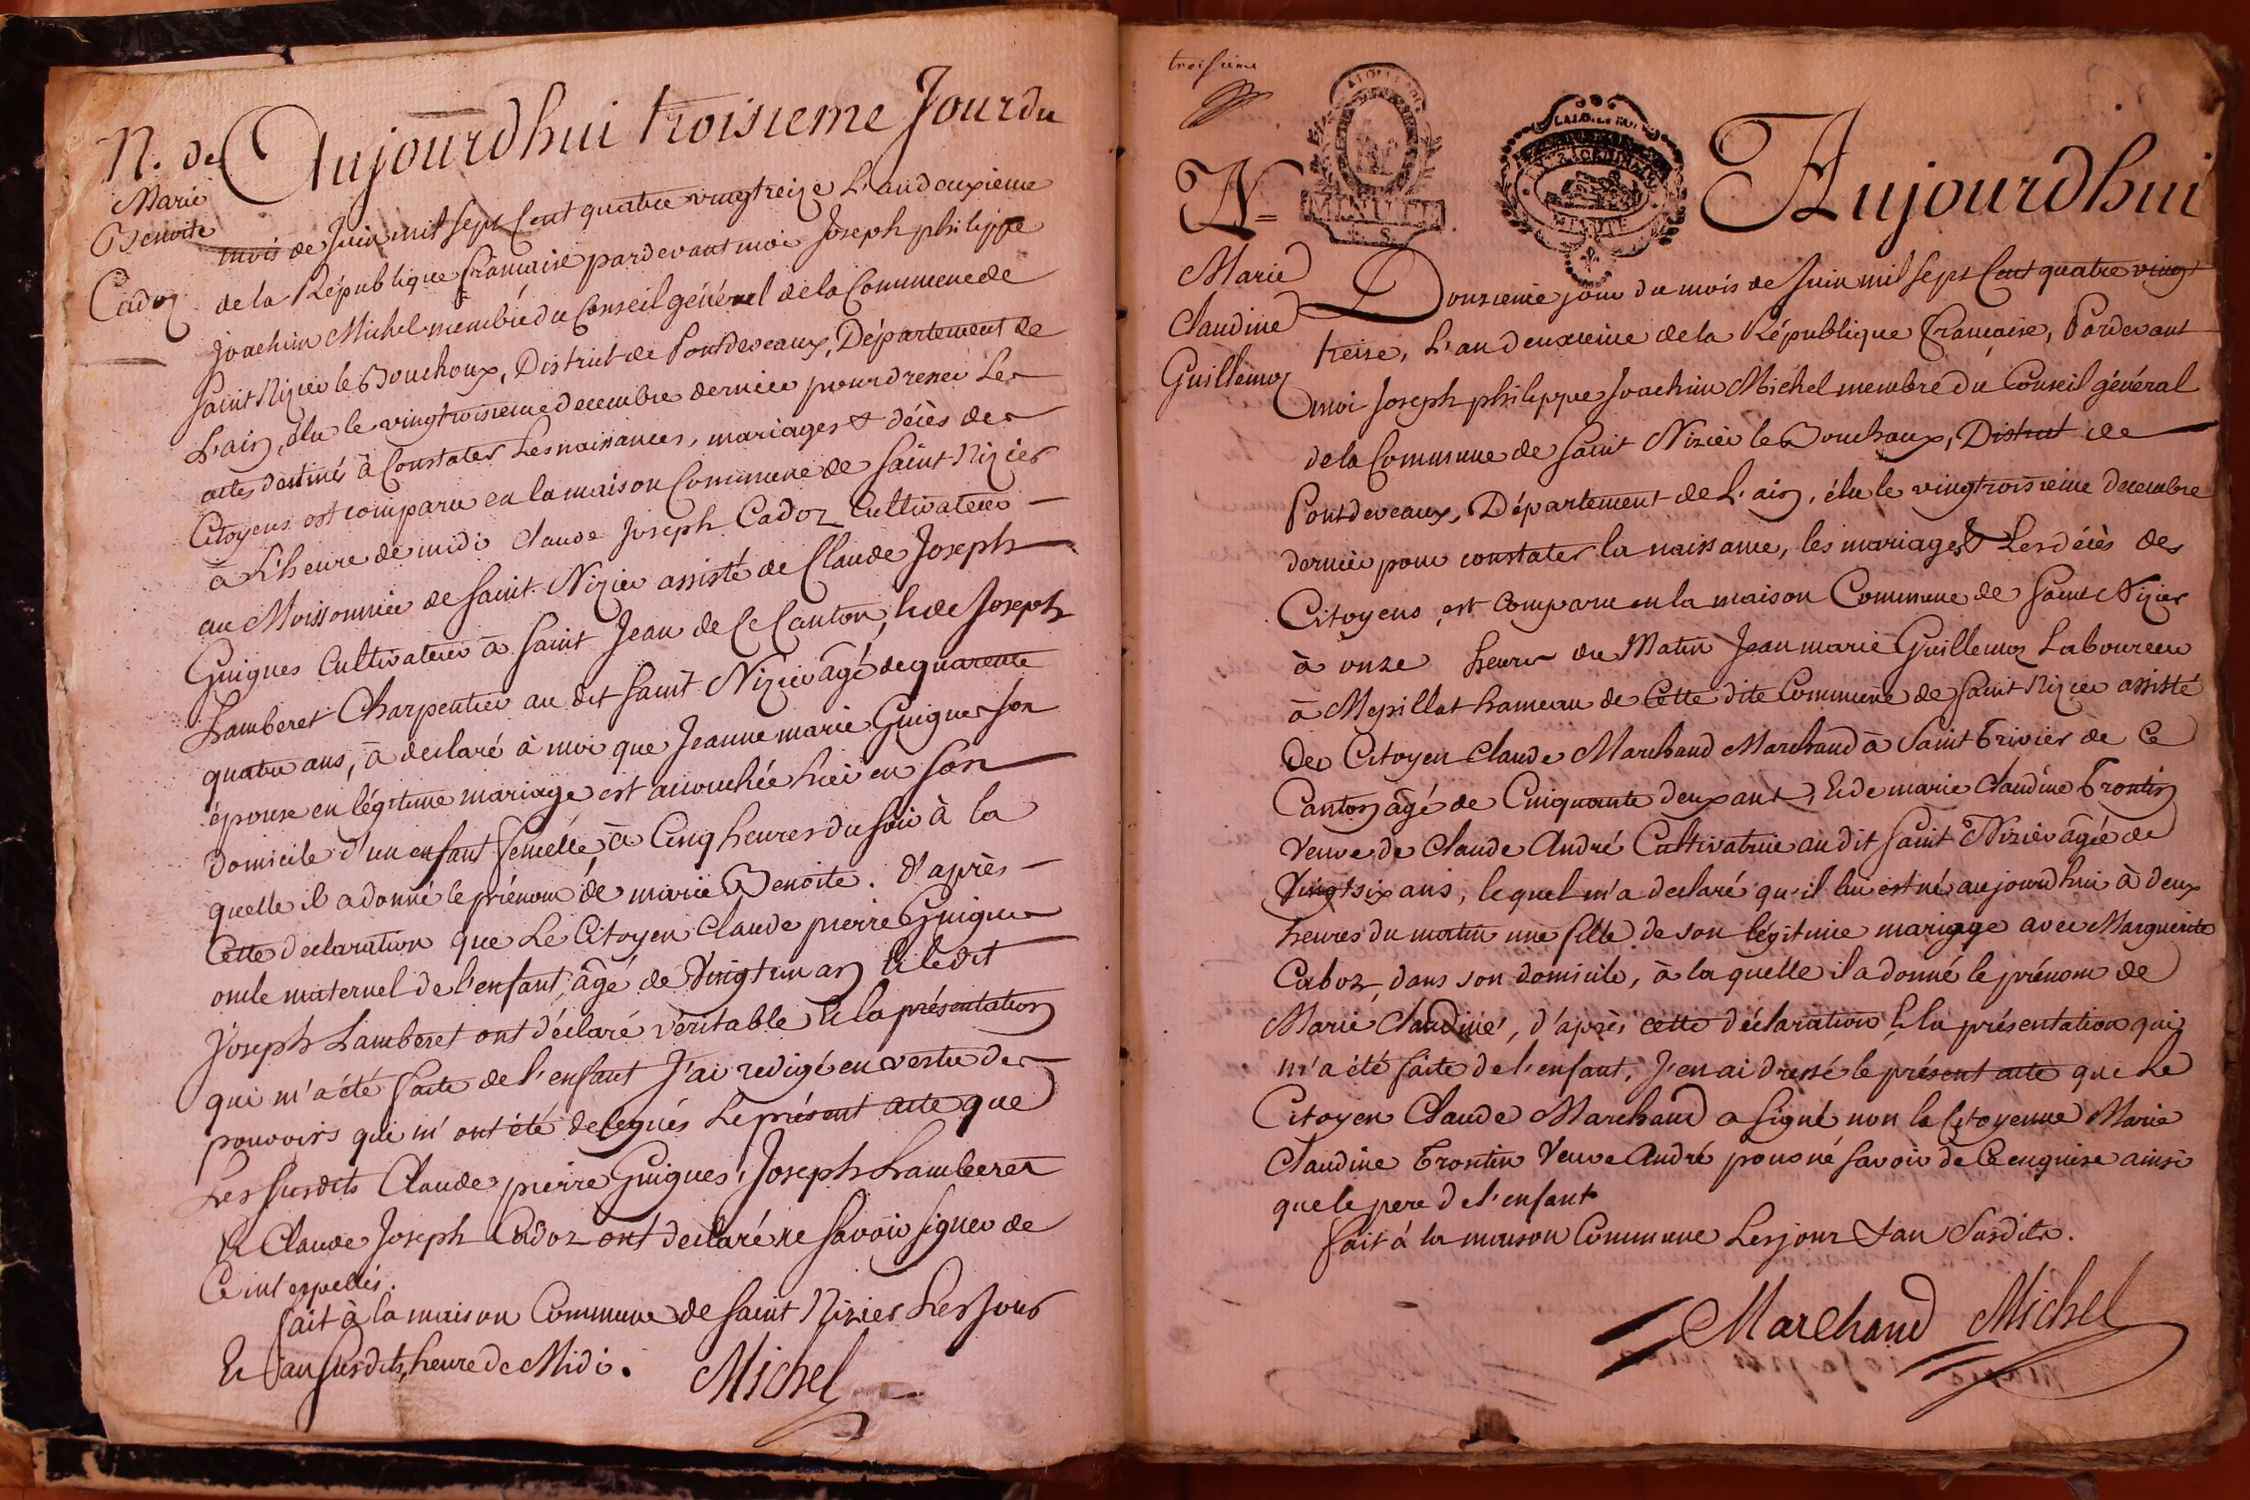 N. de
Marie
Benoite
Cadoz
Aujourd'hui troisieme Jour du
mois de Juin mil sept Cent quatre vingt treize L'an deuxieme
de la République française pardevant moi Joseph philippe
Joachim Michel membre du Conseil général de la Commune de
Saint Nizier le Bouchoux, District de Pontdevaux, Département de
L'ain, élu le vingt troisieme decembre dernier pour dresser Les
actes destinés à Constater Les naissances, mariages & décès des
Citoyens est comparu en la maison Commune de Saint Nizier
à L'heure de midi Claude Joseph Cadoz Cultivateur
au Moissonnier de Saint Nizier assisté de Claude Joseph
Guigues Cultivateur à Saint Jean de Ce Canton, & de Joseph
Lamberet Charpentier au dit Saint Nizier âgé de quarente
quatre ans, à declaré à moi que Jeanne marie Guigues son
épouse en légitime mariage est accouchée hier en son
domicile d'un enfant femelle, à Cinq heures du soir à la
quelle il a donné le prénom de marie Benoite. D'après
Cette declaration que Le Citoyen Claude pierre Guigues
oncle maternel de l'enfant, âgé de Vingt un an & le dit
Joseph Lamberet ont déclaré véritable & la présentation
qui m'a été faite de l'enfant J'ai redigé en vertu des
pouvoirs qui m'ont été delegués Le présent acte que
Les susdits Claude pierre Guigues, Joseph Lamberet
& Claude Joseph Cadoz ont declaré ne savoir signer de
Ce interpellés.
fait à la maison Commune de Saint Nizier Les Jour
& an susdits, heure de Midi.
Michel
troisieme
N=
Marie
Claudine
Guillemoz
LA LOI LE ROI
MINUTE
MINUTE
Aujourd'hui
Douzieme jour du mois de Juin mil sept Cent quatre vingt
treize, L'an deuxieme de la République française, Pardevant
moi Joseph philippe Joachim Michel membre du Conseil général
de la Commune de Saint Nizier le Bouchoux, District de
Pontdevaux, Département de L'ain, élu le vingt troisieme decembre
dernier pour constater la naissance, les mariages & Les décès des
Citoyens, est comparu en la maison Commune de Saint Nizier
à onze heures du Matin Jean marie Guillemoz Laboureur
à Mepillat hameau de Cette dite Commune de Saint Nizier assisté
Des Citoyen Claude Marchand Marchand à Saint Trivier de Ce
Canton âgé de Cinquante deux ans, & de marie Claudine Trontin
Veuve de Claude André Cultivatrice au dit Saint Nizier âgée de
Vingt six ans, lequel m'a declaré qu'il lui est né aujourd'hui à deux
heures du matin une fille de son légitime mariage avec Marguerite
Caboz, dans son domicile, à la quelle il a donné le prénom de
Marie Claudine, d'après cette déclaration & la présentation qui
m'a été faite de l'enfant, J'en ai dressé le présent acte que Le
Citoyen Claude Marchand a signé non la Citoyenne Marie
Claudine Trontin Veuve André pour né savoir de Ce enquise ainsi
que le pere de l'enfant
fait à la maison Commune Les jour & an Susdits.
Marchand Michel